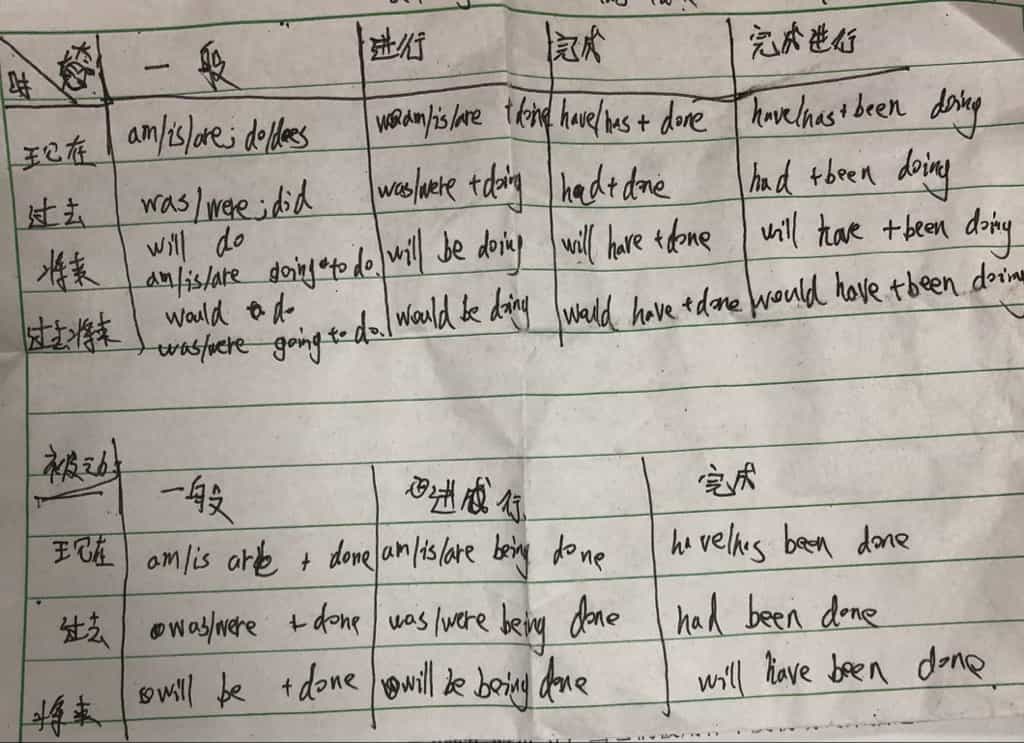 时 态 一般 进行 完成 完成进行
现在 am/is/are; do/does am/is/are +done have/has + done have/has + been doing
过去 was/were; did was/were + doing had + done had + been doing
将来 will do will be doing will have + done will have + been doing
am/is/are doing to do.
过去将来 would do would be doing would have + done would have + been doing
was/were going to do.
被动 一般 进行 完成
现在 am/is are + done am/is/are being done have/has been done
过去 was/were + done was/were being done had been done
将来 will be + done will be being done will have been done